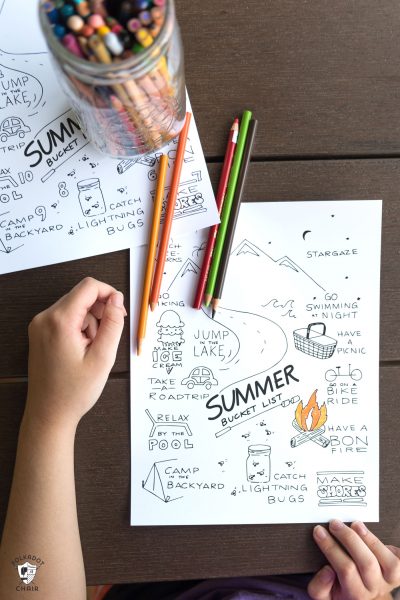 JUMP
IN THE
LAKE,
ROADTRIP
SUMMER
BUCKET LIST
CATCH
LIGHTNING
BUGS
CAMP
IN THE
BACKYARD
STARGAZE
GO
SWIMMING
AT NIGHT
JUMP
IN THE
LAKE,
HAVE
A
PICNIC
MAKE
ICE
CREAM
TAKE
A
ROADTRIP
SUMMER
BUCKET LIST
GO ON A
BIKE
RIDE
RELAX
BY THE
POOL
HAVE A
BON
FIRE
CAMP
IN THE
BACKYARD
CATCH
LIGHTNING
BUGS
MAKE
SMORES
POLKADOT
CHAIR